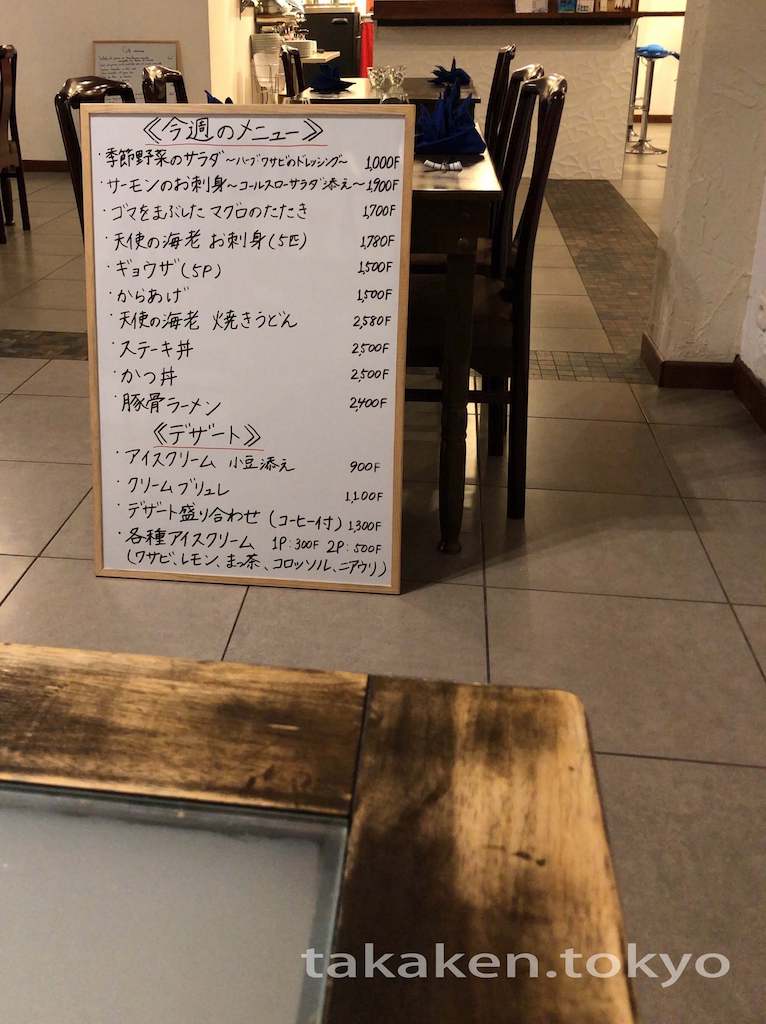 《今週のメニュー》
・季節野菜のサラダ～ハーブワサビのドレッシング～ 1,000F
・サーモンのお刺身～コールスローサラダ添え～1,900F
・ゴマをまぶしたマグロのたたき 1,700F
・天使の海老 お刺身(5匹) 1,780F
・ギョウザ(5P) 1,500F
・からあげ 1,500F
・天使の海老 焼きうどん 2,580F
・ステーキ丼 2,500F
・かつ丼 2,500F
・豚骨ラーメン 2,400F
《デザート》
・アイスクリーム 小豆添え 900F
・クリームブリュレ 1,100F
・デザート盛り合わせ(コーヒー付) 1,300F
・各種アイスクリーム 1P:300F 2P:500F
(ワサビ、レモン、まっ茶、コロッソル、ニアウリ)
takaken.tokyo